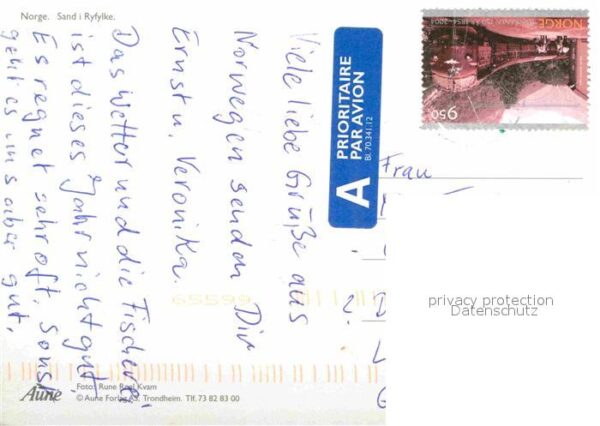 Norge. Sand i Ryfylke.
Viele liebe Grüße aus
Norwegen senden Dir
Ernst u. Veronika.
Das Wetter und die Fischerei
ist dieses Jahr nicht gut.
Es regnet sehr oft, sonst
geht es uns aber gut.
A PRIORITAIRE
PAR AVION
Bl. 70.341.12
NORGE
9.50
Frau
65599
privacy protection
Datenschutz
Aune
Foto: Rune Kvam
© Aune Forlag AS, Trondheim. Tlf. 73 82 83 00